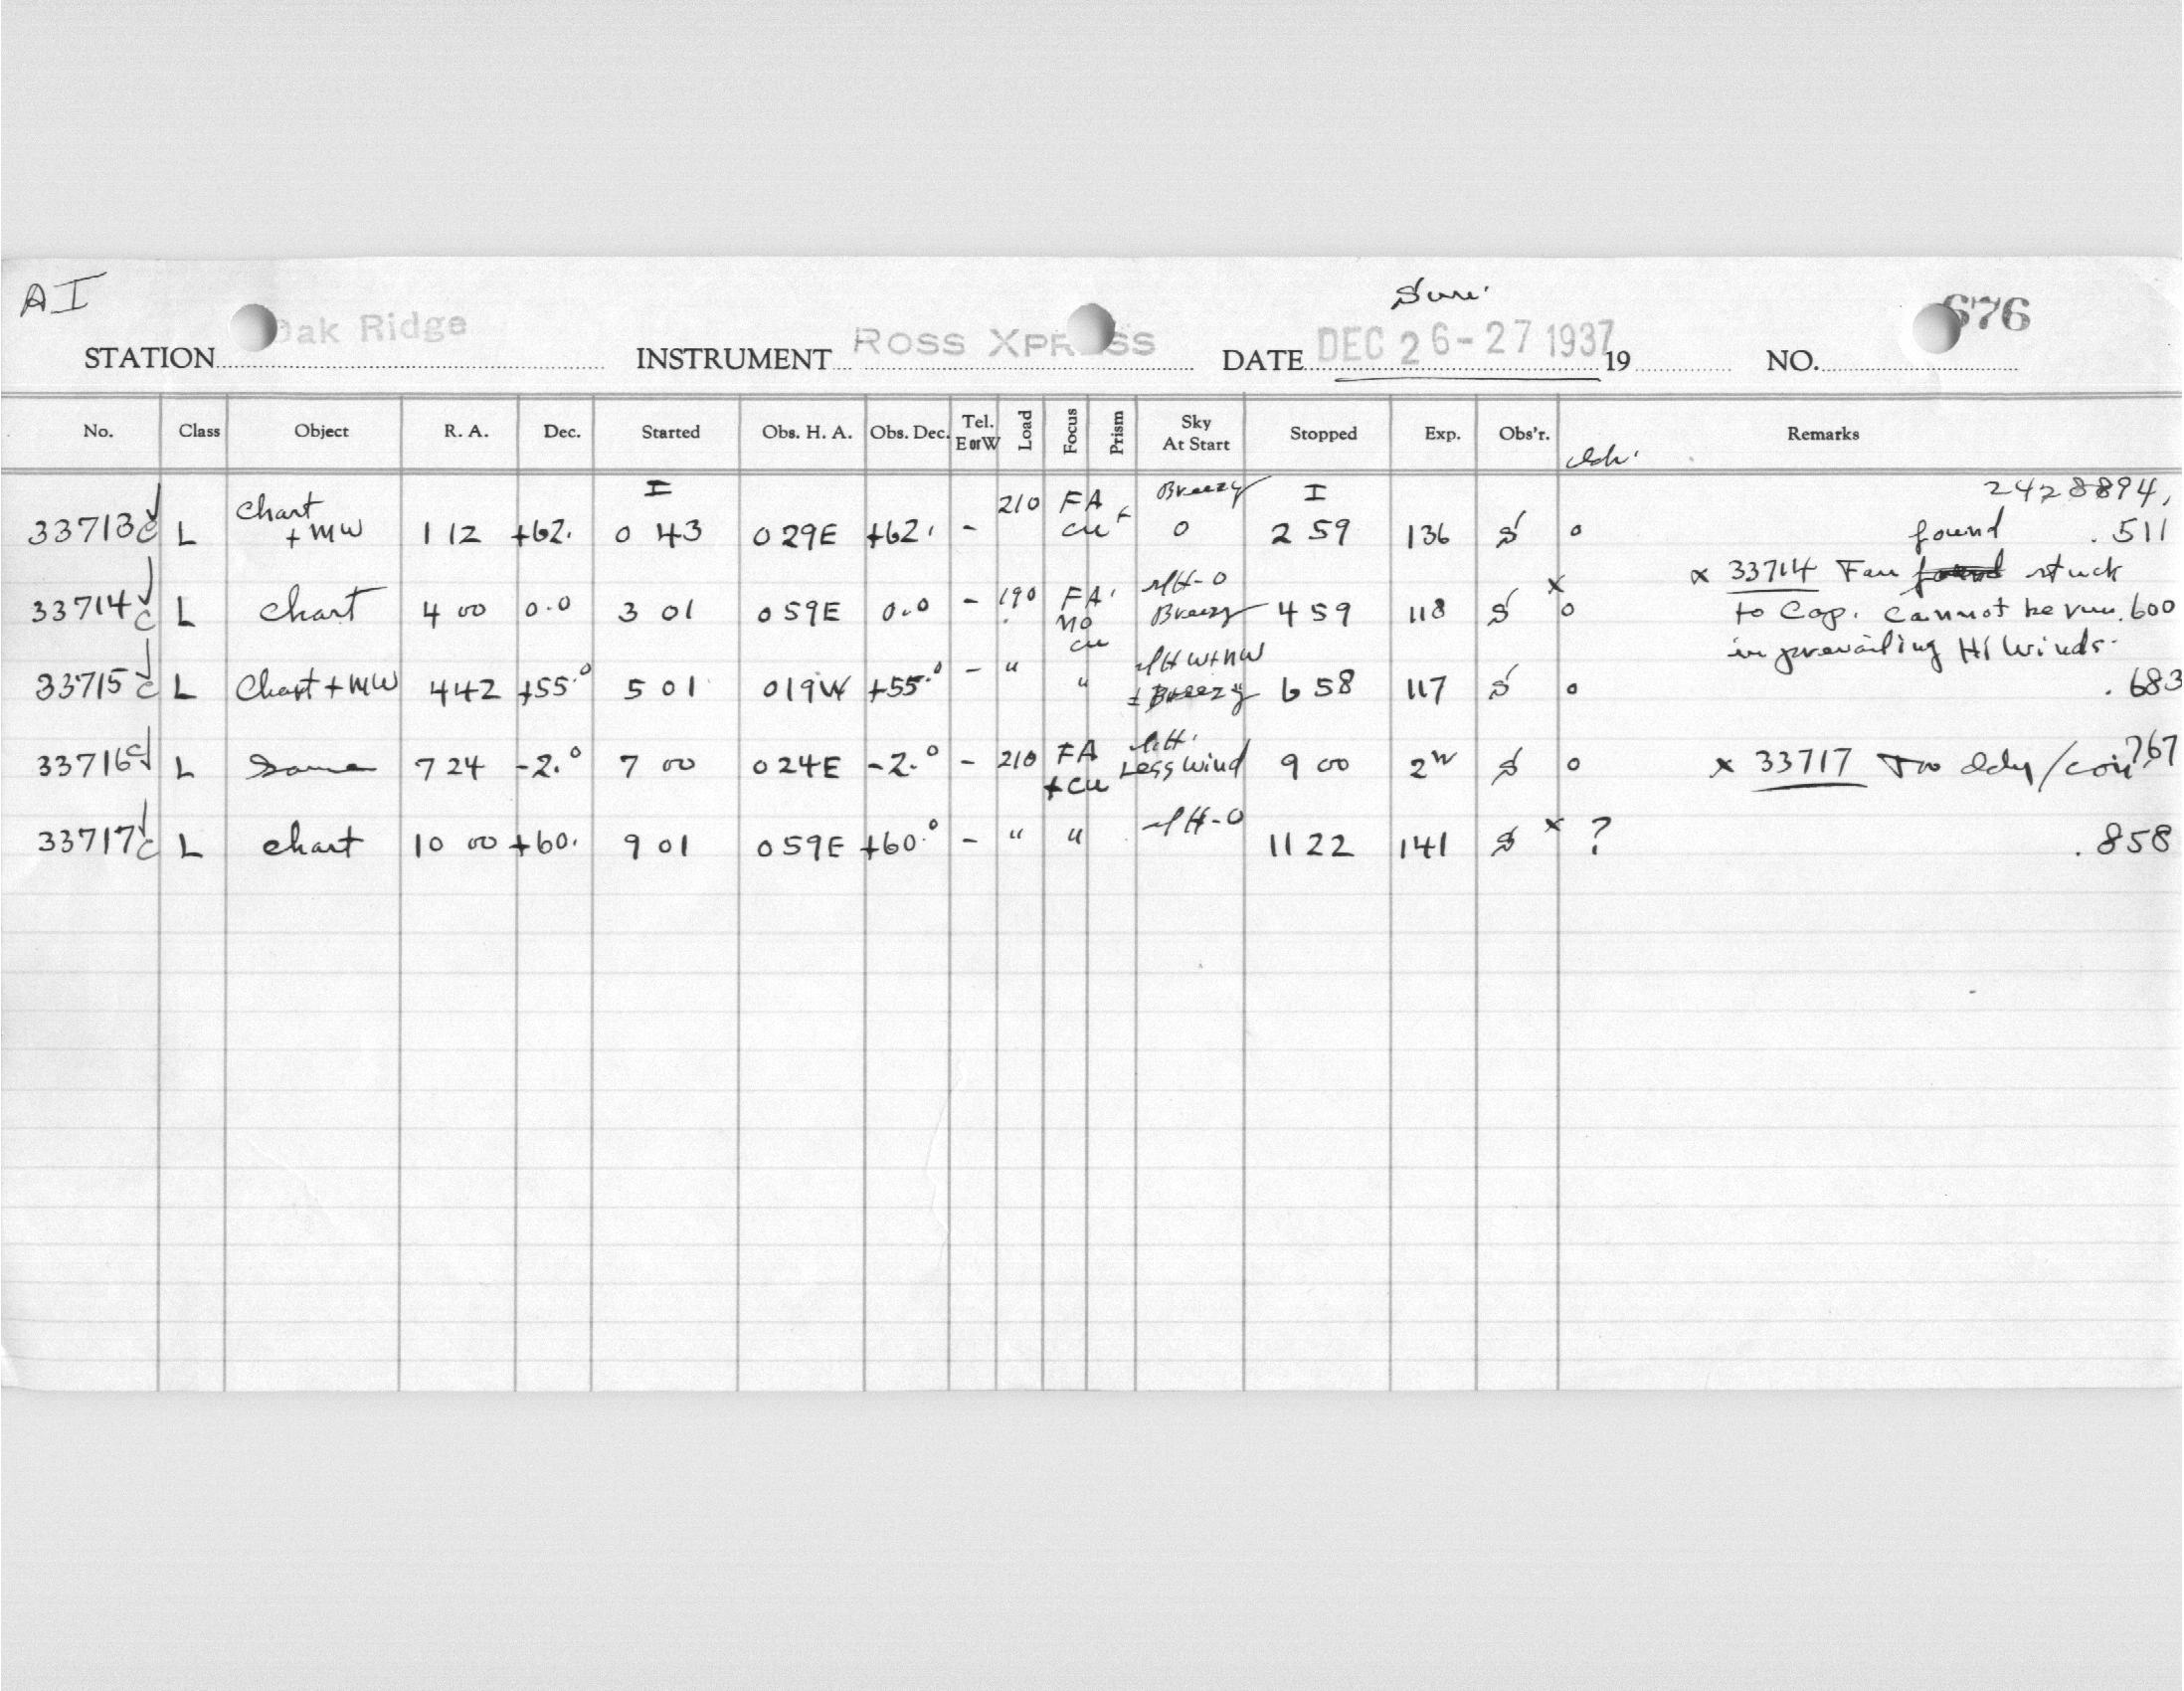 AI
Oak Ridge ROSS XPRESS DEC 26-27 1937 676
STATION INSTRUMENT DATE 19 NO.
No. Class Object R. A. Dec. Started Obs. H. A. Obs. Dec. Tel. E or W Load Focus Prism Sky At Start Stopped Exp. Obs'r. Remarks
I I 2428894,
33713 c L Chart + MW 1 12 +62. 0 43 0 29E +62. - 210 FA + cu Breezy 0 2 59 136 S 0 found .511
x 33714 Fan stuck
33714 c L Chart 4 00 0.0 3 01 0 59E 0.0 - 190 FA no cu H-0 Breezy 4 59 118 S x 0 to Cap. Cannot be run .600
in prevailing Hi Winds.
33715 c L Chart + MW 4 42 +55.° 5 01 0 19W +55.° - " " H W+NW ± Breezy 6 58 117 S 0 .683
33716 c L Same 7 24 -2.° 7 00 0 24E -2.° - 210 FA + cu Less Wind 9 00 2 S 0 x 33717 .767
33717 c L Chart 10 00 +60. 9 01 0 59E +60.° - " " H-0 11 22 141 S x ? .858